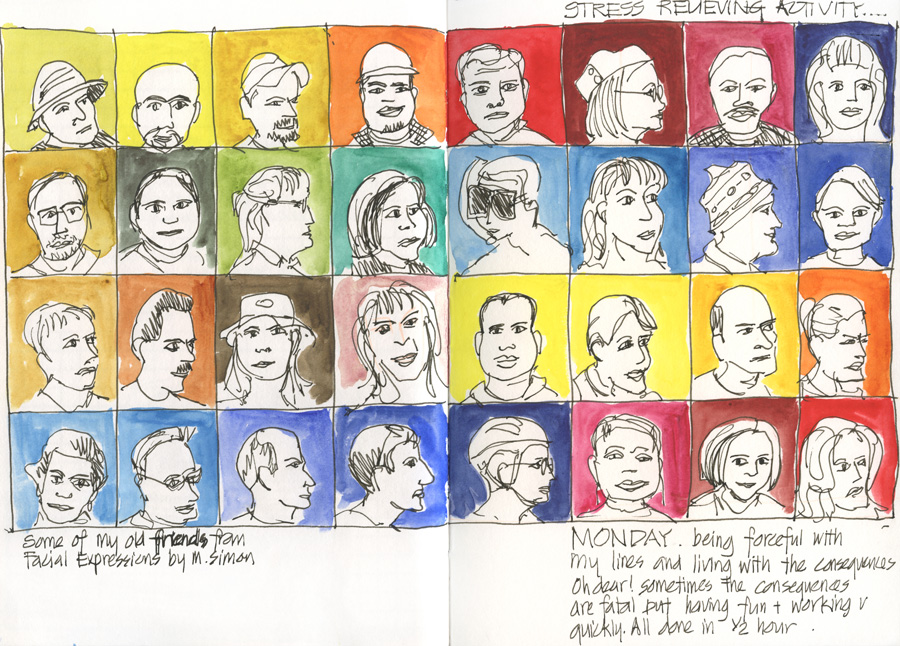 STRESS RELIEVING ACTIVITY....
Some of my old friends from
Facial Expressions by M. Simon
MONDAY. being forceful with
my lines and living with the consequences
Oh dear! Sometimes the consequences
are fatal but having fun + working
quickly. All done in ½ hour.